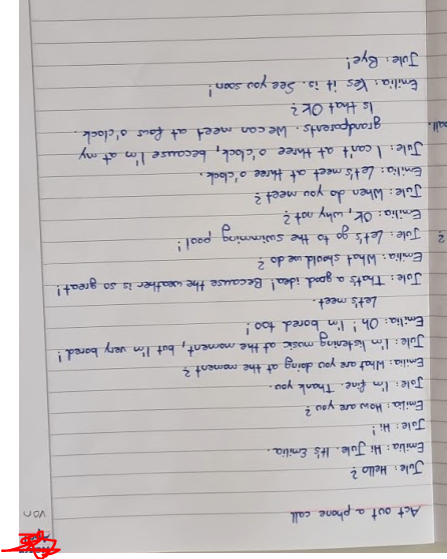 Act out a phone call
von
Jule: Hello?
Emilia: Hi Jule. It's Emilia.
Jule: Hi!
Emilia: How are you?
Jule: I'm fine. Thank you.
Emilia: What are you doing at the moment?
Jule: I'm listening music at the moment, but I'm very bored!
Emilia: Oh! I'm bored too!
Let's meet.
Jule: That's a good idea! Because the weather is so great!
Emilia: What should we do?
Jule: Let's go to the swimming pool!
Emilia: OK, why not?
Jule: When do you meet?
Emilia: Let's meet at three o'clock.
Jule: I can't at three o'clock, because I'm at my
grandparents. We can meet at four o'clock.
Is that OK?
Emilia: Yes it is. See you soon!
Jule: Bye!